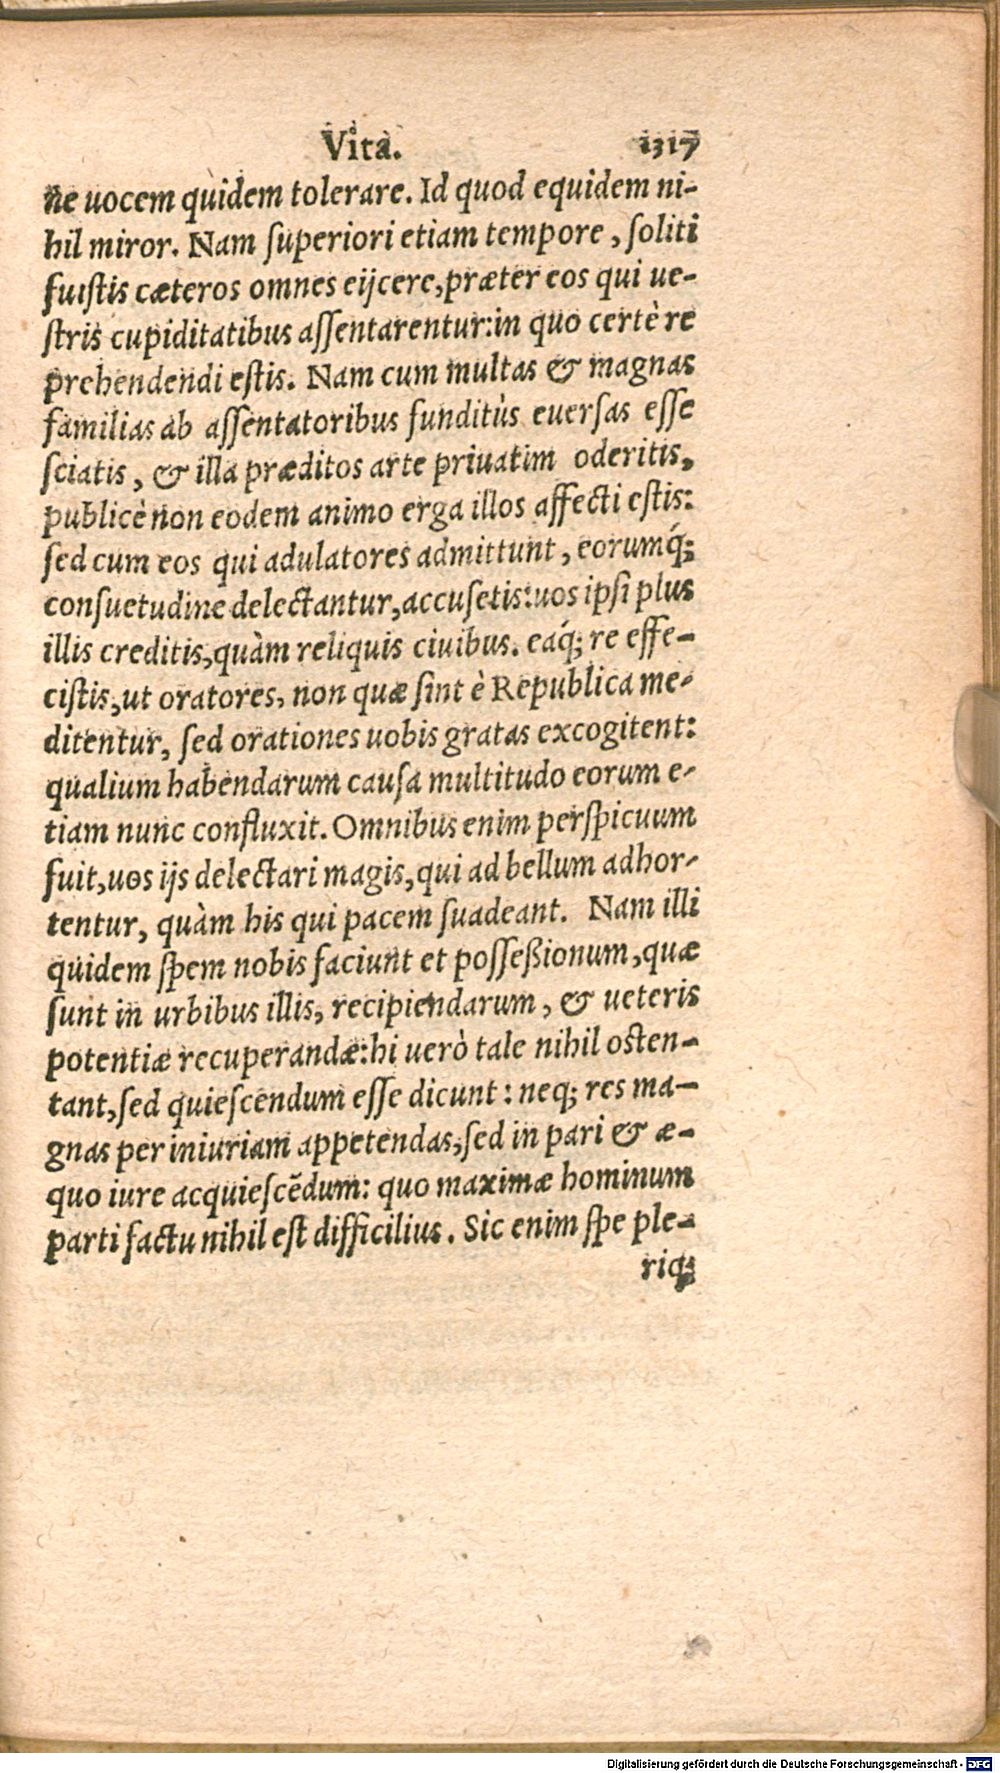 Vita. 1317
ne uocem quidem tolerare. Id quod equidem ni-
hil miror. Nam ſuperiori etiam tempore, ſoliti
fuiſtis cæteros omnes eijcere, præter eos qui ue-
ſtris cupiditatibus aſſentarentur: in quo certè re
prehendendi eſtis. Nam cum multas & magnas
familias ab aſſentatoribus funditùs euerſas eſſe
ſciatis, & illa præditos arte priuatim oderitis,
publicè non eodem animo erga illos affecti eſtis:
ſed cum eos qui adulatores admittunt, eorumq́;
conſuetudine delectantur, accuſetis: uos ipſi plus
illis creditis, quàm reliquis ciuibus. eaq́; re effe-
ciſtis, ut oratores, non quæ ſint è Republica me-
ditentur, ſed orationes uobis gratas excogitent:
qualium habendarum cauſa multitudo eorum e-
tiam nunc confluxit. Omnibus enim perſpicuum
fuit, uos ijs delectari magis, qui ad bellum adhor-
tentur, quàm his qui pacem ſuadeant. Nam illi
quidem ſpem nobis faciunt et poſſeßionum, quæ
ſunt in urbibus illis, recipiendarum, & ueteris
potentiæ recuperandæ: hi uerò tale nihil oſten-
tant, ſed quieſcendum eſſe dicunt: neq; res ma-
gnas per iniuriam appetendas, ſed in pari & æ-
quo iure acquieſcẽdum: quo maximæ hominum
parti factu nihil eſt difficilius. Sic enim ſpe ple-
riq;
Digitalisierung gefördert durch die Deutsche Forschungsgemeinschaft - DFG